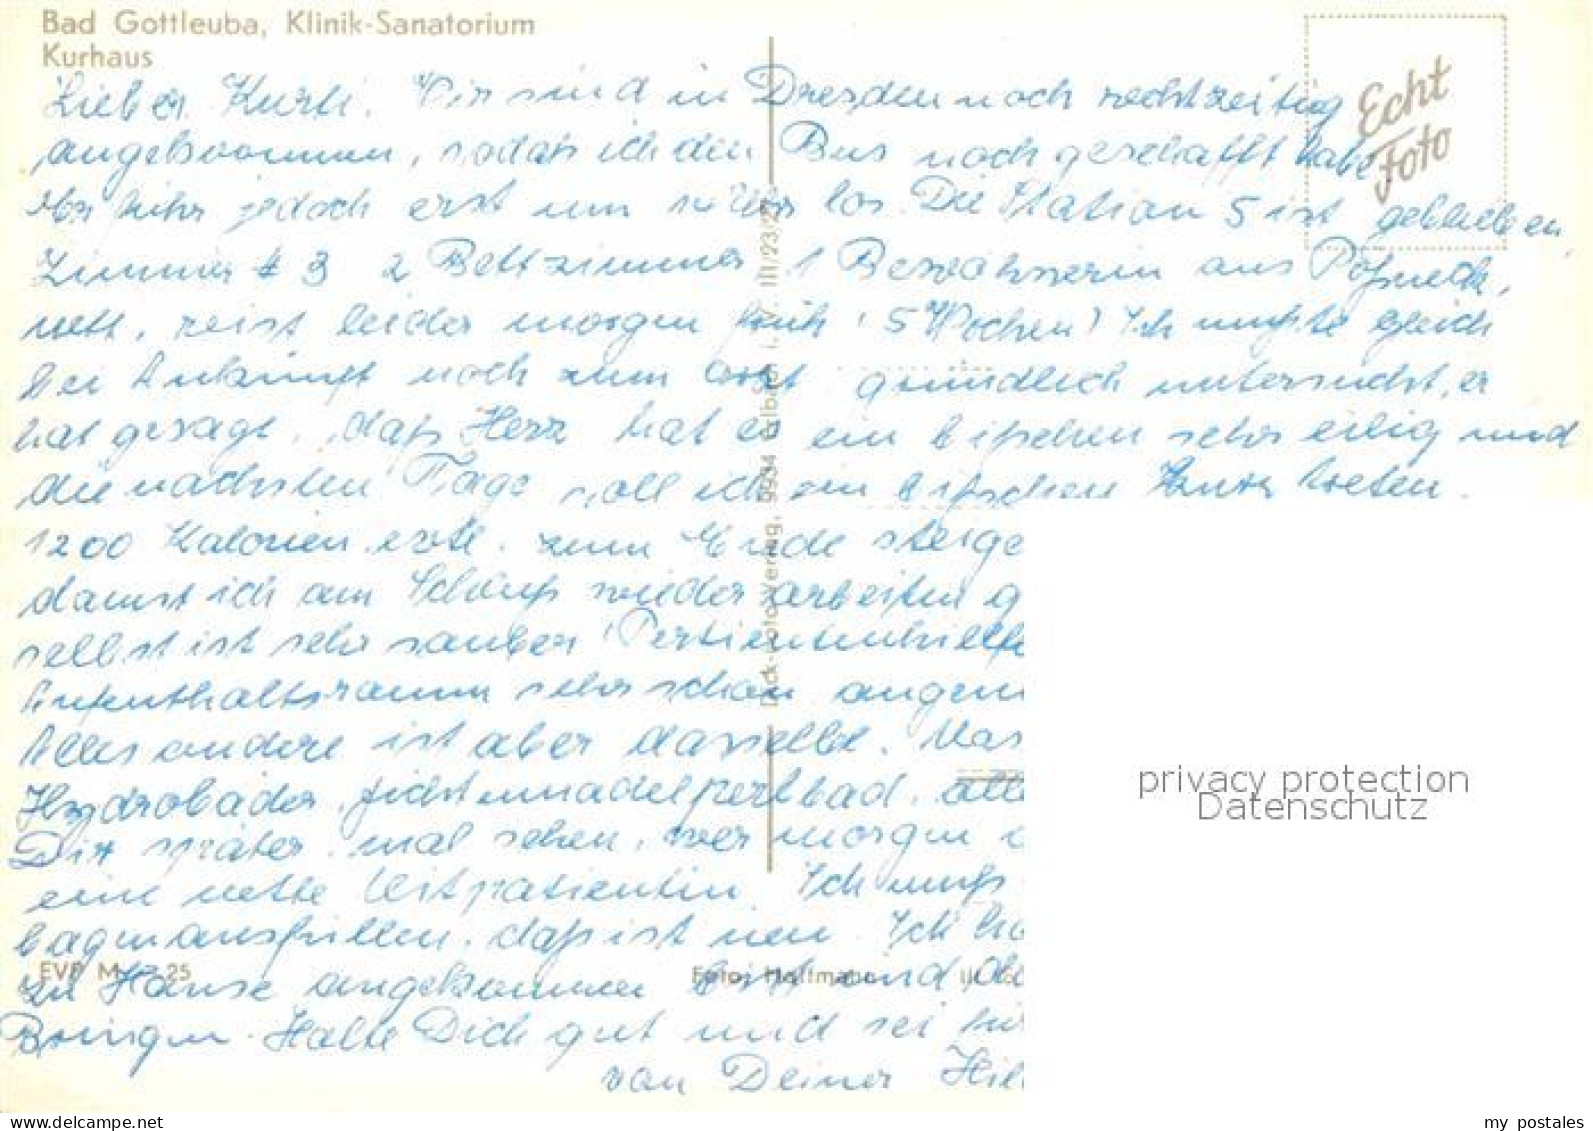 Bad Gottleuba, Klinik-Sanatorium
Kurhaus
Echt
Foto
Lieber Kurti. Wir sind in Dresden noch rechtzeitig
angekommen, sodaß ich den Bus noch geschafft habe
jedoch erst um los. Die Station 5 ist geblieben,
Zimmer 3 2 Bettzimmer, 1 Bewohnerin aus Pößneck,
nett, reist leider morgen früh (5 Wochen) Ich mußte gleich
bei Ankunft noch zum Arzt gründlich untersucht, er
hat gesagt, daß Herz hat es ein bißchen sehr eilig und
die nächsten Tage soll ich ein bißchen kurz treten.
1200 Kalorien erstl. zum Ende steige
damit ich am Schluß wieder arbeiten g
selbst ist sehr sauber (Patientenhilfe
Aufenthaltsraum sehr schön angen
Alles andere ist aber dasselbe. Mas
Hydrobäder, Fichtennadelperlbad, alle
Dir später mal sehen, wer morgen
eine nette Mitpatientin. Ich muß
bagen ausfüllen, daß ist neu. Ich ho
zu Hause angekommen bist und
Halte Dich gut und sei
von Deiner Hil
Bück-Foto-Verlag, 9934 Elbach i. V. III/23/27
EVP M 25
Foto: Halfmann
privacy protection
Datenschutz
my_postales